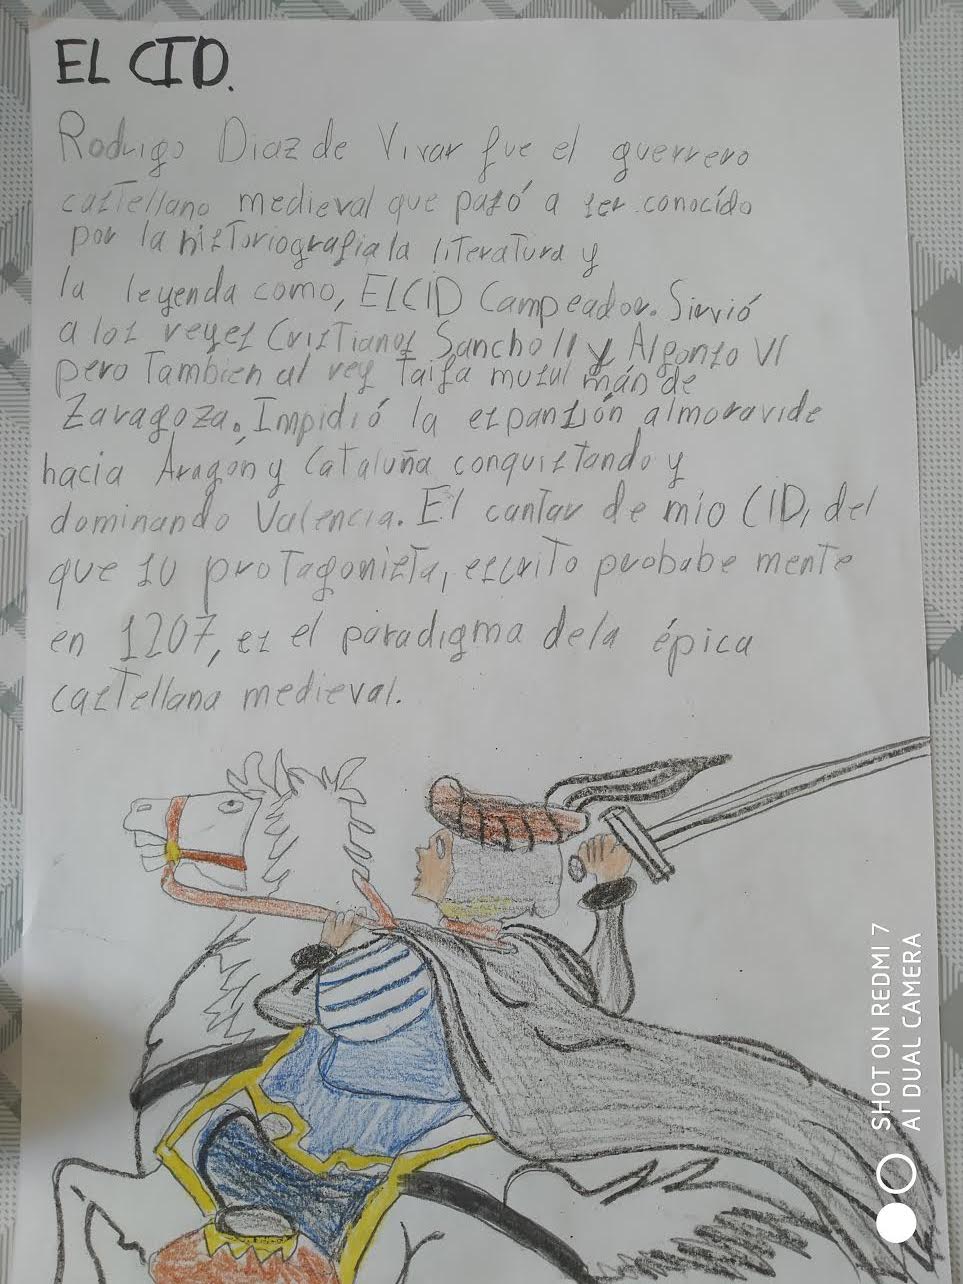 EL CID.
Rodrigo Diaz de Vivar fue el guerrero
castellano medieval que pasó a ser conocido
por la historiografia la literatura y
la leyenda como, EL CID Campeador. Sirvió
a los reyes Cristianos Sancho II y Algonso VI
pero Tambien al rey Taifa musul mán de
Zaragoza. Impidió la espansión almoravide
hacia Aragón y Cataluña conquistando y
dominando Valencia. El cantar de mio CID, del
que su protagonista, escrito probabe mente
en 1207, es el paradigma dela épica
castellana medieval.
SHOT ON REDMI 7
AI DUAL CAMERA